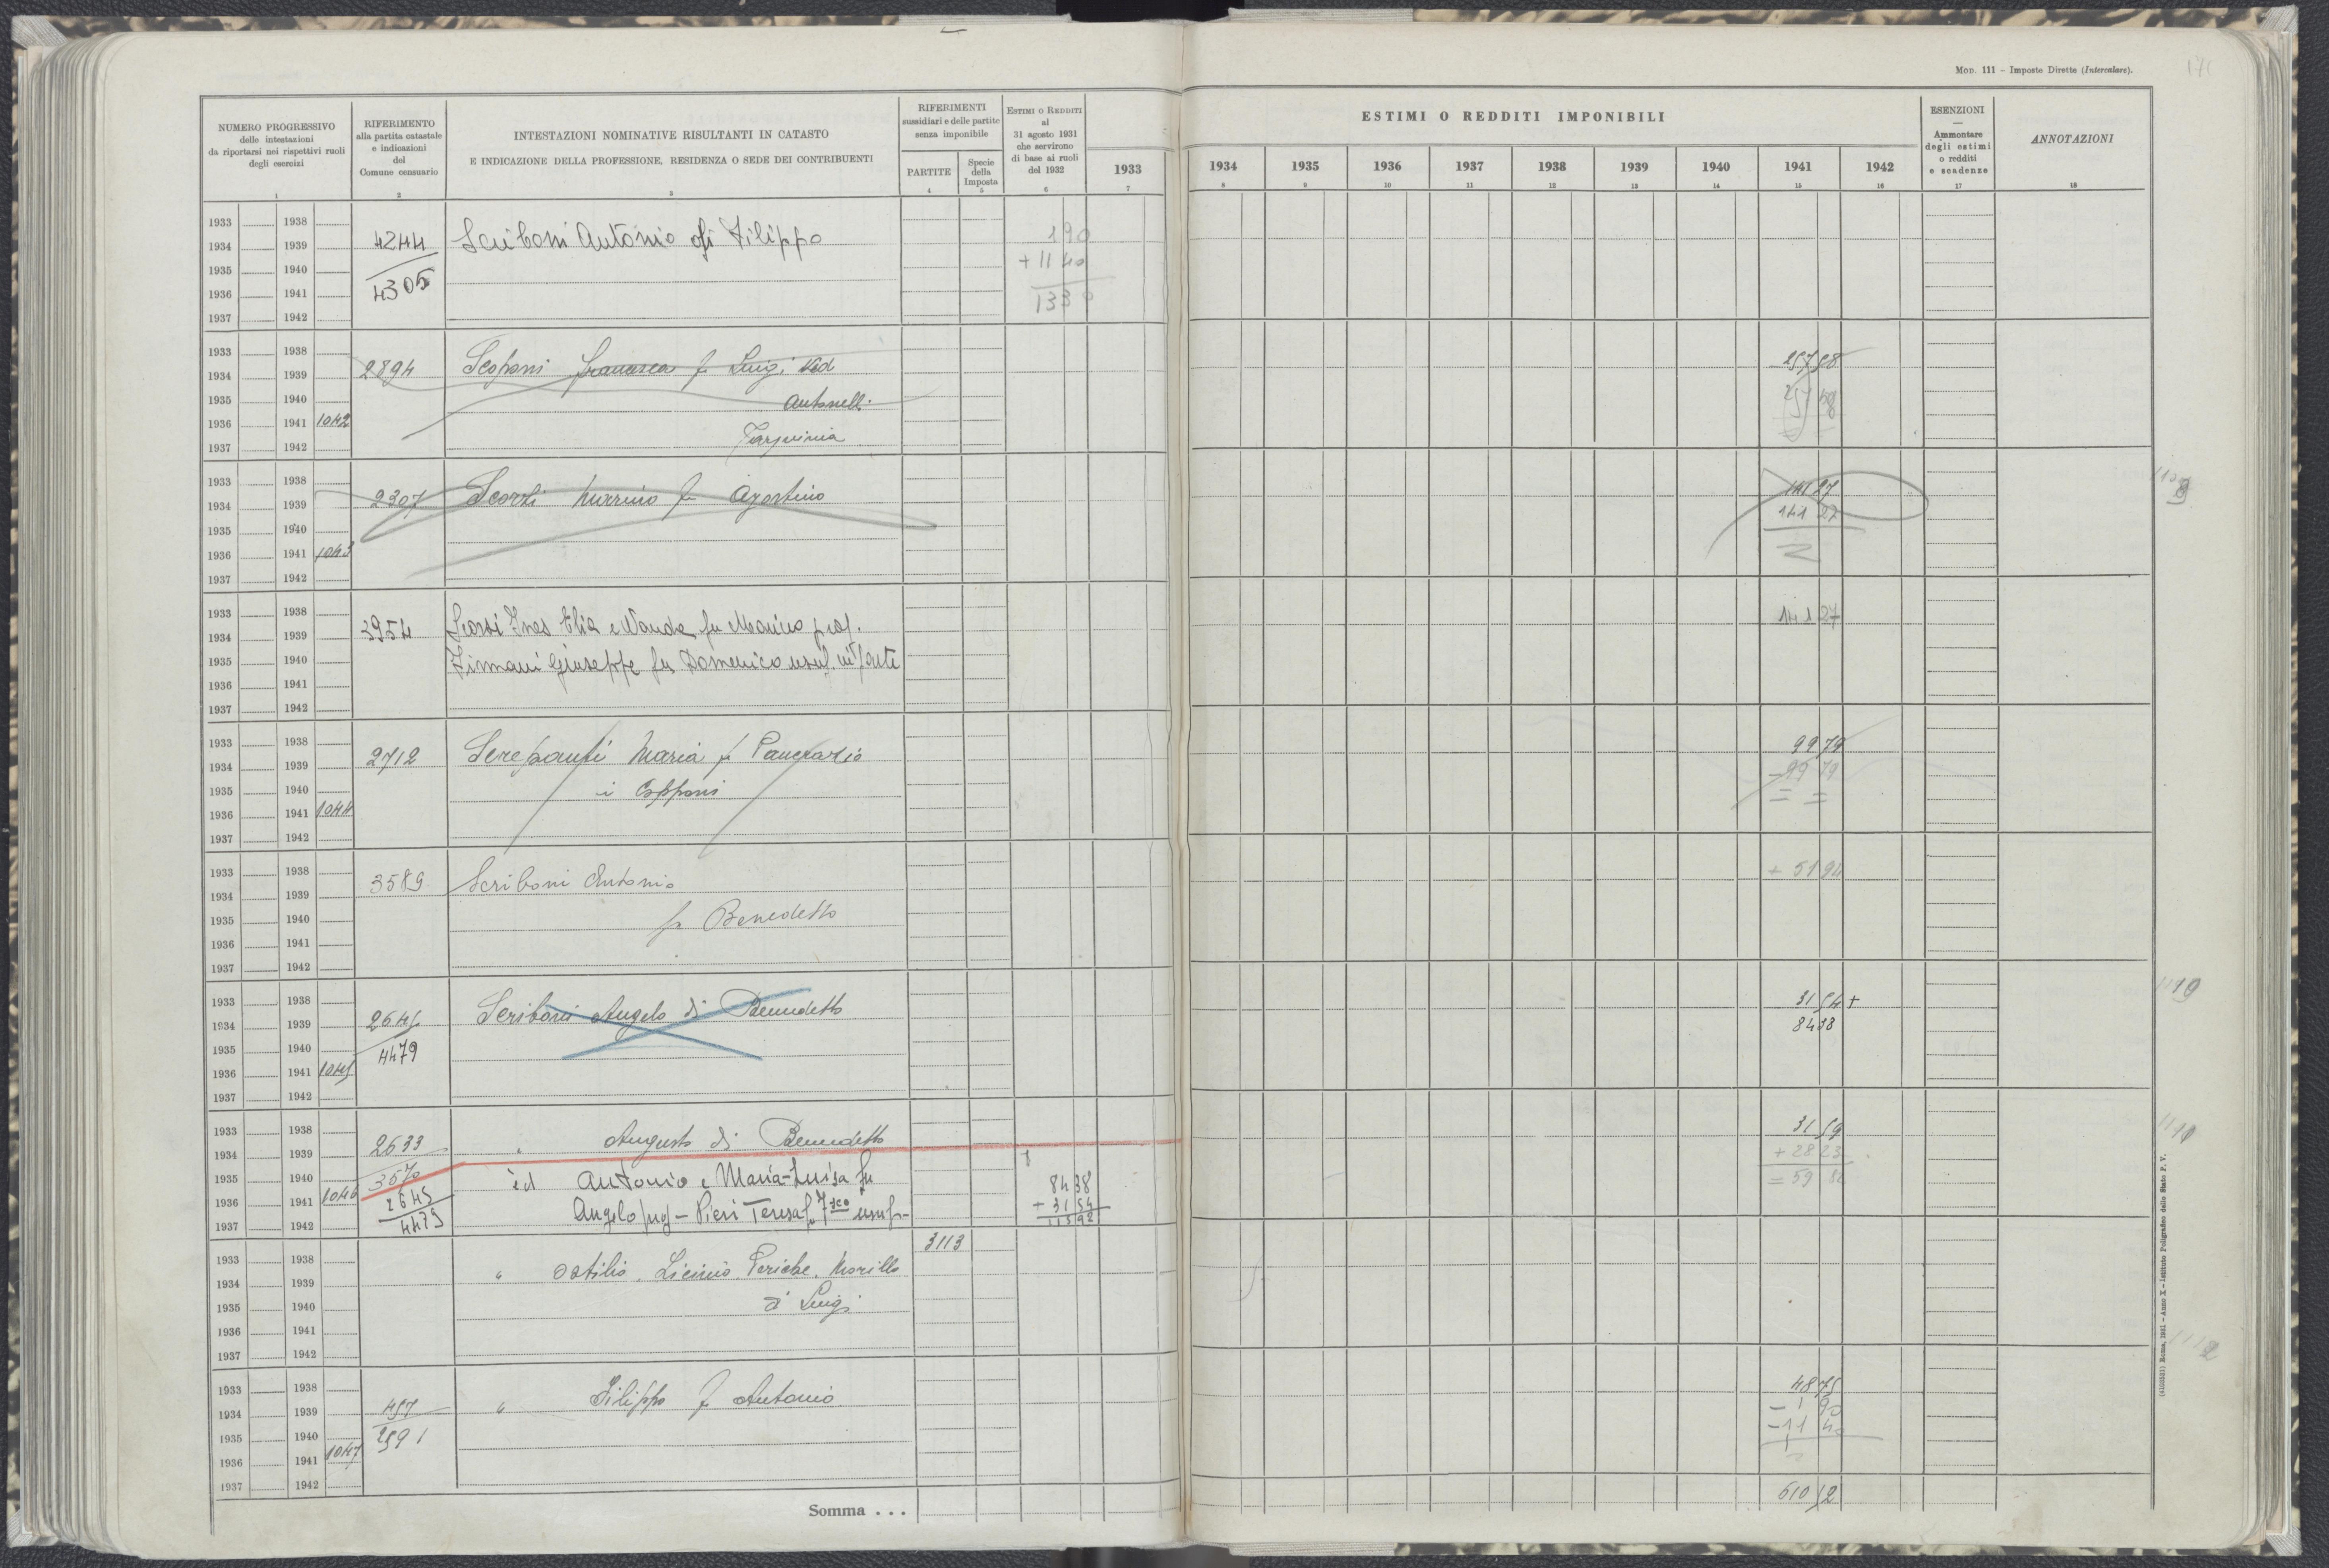 Mod. 111 – Imposte Dirette (Intercalare).
NUMERO PROGRESSIVO
delle intestazioni
da riportarsi nei rispettivi ruoli
degli esercizi
1
RIFERIMENTO
alla partita catastale
e indicazioni
del
Comune censuario
2
INTESTAZIONI NOMINATIVE RISULTANTI IN CATASTO
E INDICAZIONE DELLA PROFESSIONE, RESIDENZA O SEDE DEI CONTRIBUENTI
3
RIFERIMENTI
sussidiari e delle partite
senza imponibile
PARTITE
4
Specie
della
Imposta
5
Estimi o Redditi
al
31 agosto 1931
che servirono
di base ai ruoli
del 1932
6
1933
7
ESTIMI O REDDITI IMPONIBILI
1934 1935 1936 1937 1938 1939 1940 1941 1942
8 9 10 11 12 13 14 15 16
ESENZIONI
—
Ammontare
degli estimi
o redditi
e scadenze
17
ANNOTAZIONI
18
1933 1938
1934 1939 4244 Scriboni Antonio di Filippo 190
1935 1940 + 11 40
1936 1941 4305 1330
1937 1942
1933 1938
1934 1939 2894 Scoponi Francesca f Luigi Ved 257 58
1935 1940 Antonelli
1936 1941 1042
1937 1942 Tarquinia
1933 1938
1934 1939 2307 Scorzi Marino fu Agostino 141 27
1935 1940 141 27
1936 1941 1043
1937 1942
1933 1938
1934 1939 3954 Scorsi Ines Elia e Wanda fu Marino prop. 141 27
1935 1940 Fimani Giuseppe fu Domenico usuf. in parte
1936 1941
1937 1942
1933 1938
1934 1939 2712 Screpanti Maria f Pancrazio 99 79
1935 1940 in Copponi – 99 79
1936 1941 1044 = =
1937 1942
1933 1938
1934 1939 3589 Scriboni Antonio + 51 94
1935 1940 fu Benedetto
1936 1941
1937 1942
1933 1938
1934 1939 2645 Scriboni Angelo di Benedetto 31 54 +
1935 1940 4479 84 38
1936 1941 1045
1937 1942
1933 1938
1934 1939 2633 " Augusto di Benedetto 31 59
1935 1940 3570 id Antonio e Maria-Luisa fu 84 38 + 28 23
1936 1941 1046 2645 Angelo prop – Pieri Teresa f. Fsco usuf – + 31 54 = 59 82
1937 1942 4479 115 92
1933 1938 3113
1934 1939 " Ostilio, Licinio, Morillo
1935 1940 di Luigi
1936 1941
1937 1942
1933 1938
1934 1939 497 " Filippo f Antonio 48 75
1935 1940 2591 – 1 90
1936 1941 1047 – 11 40
1937 1942
Somma . . . 610 52
(4100523) Roma, 1931 – Anno X – Istituto Poligrafico dello Stato P. V.